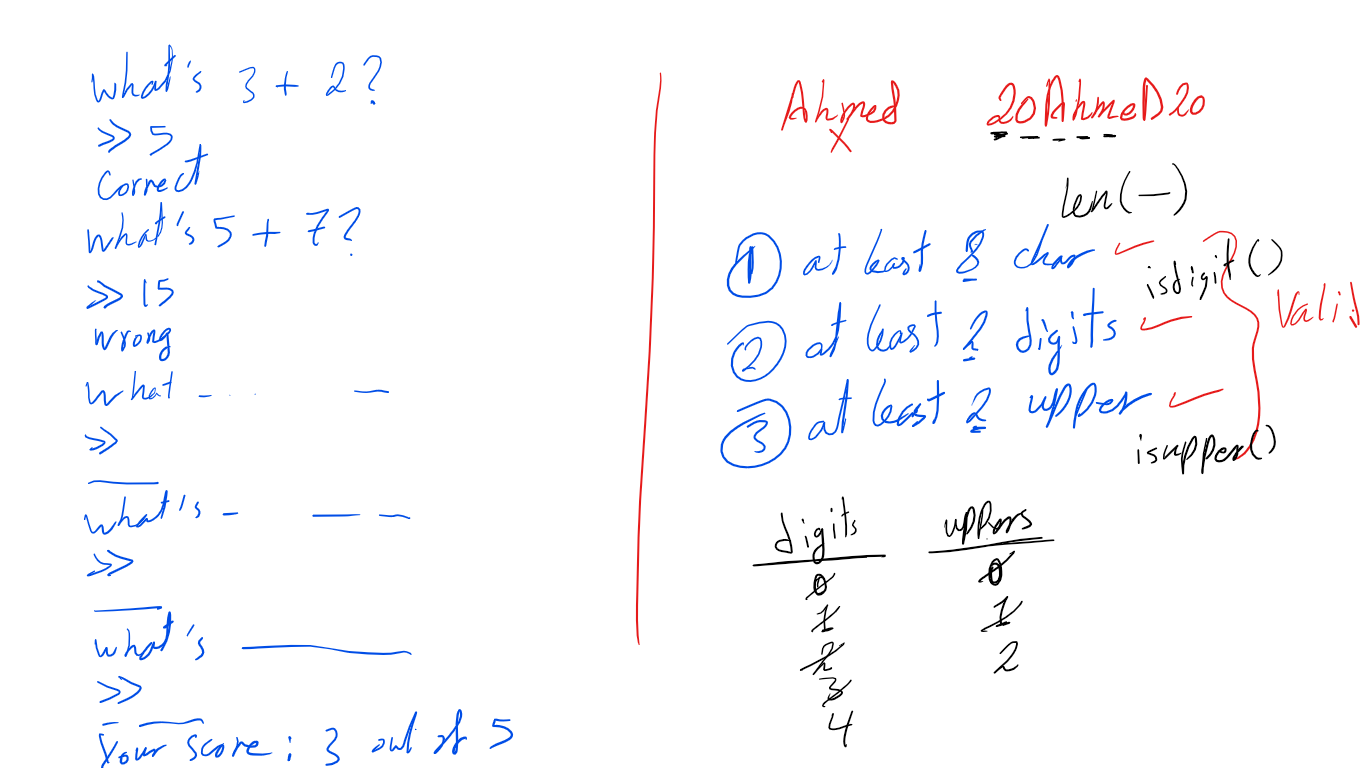 what's 3 + 2?
>> 5
Correct
what's 5 + 7?
>> 15
wrong
what
>>
what's
>>
what's
>>
Your score: 3 out of 5
Ahmed 20AhmeD20
X
len(—)
① at least 8 char ✓
isdigit()
② at least 2 digits ✓
Valid
③ at least 2 upper ✓
isupper()
digits uppers
0 0
1 1
2 2
3
4